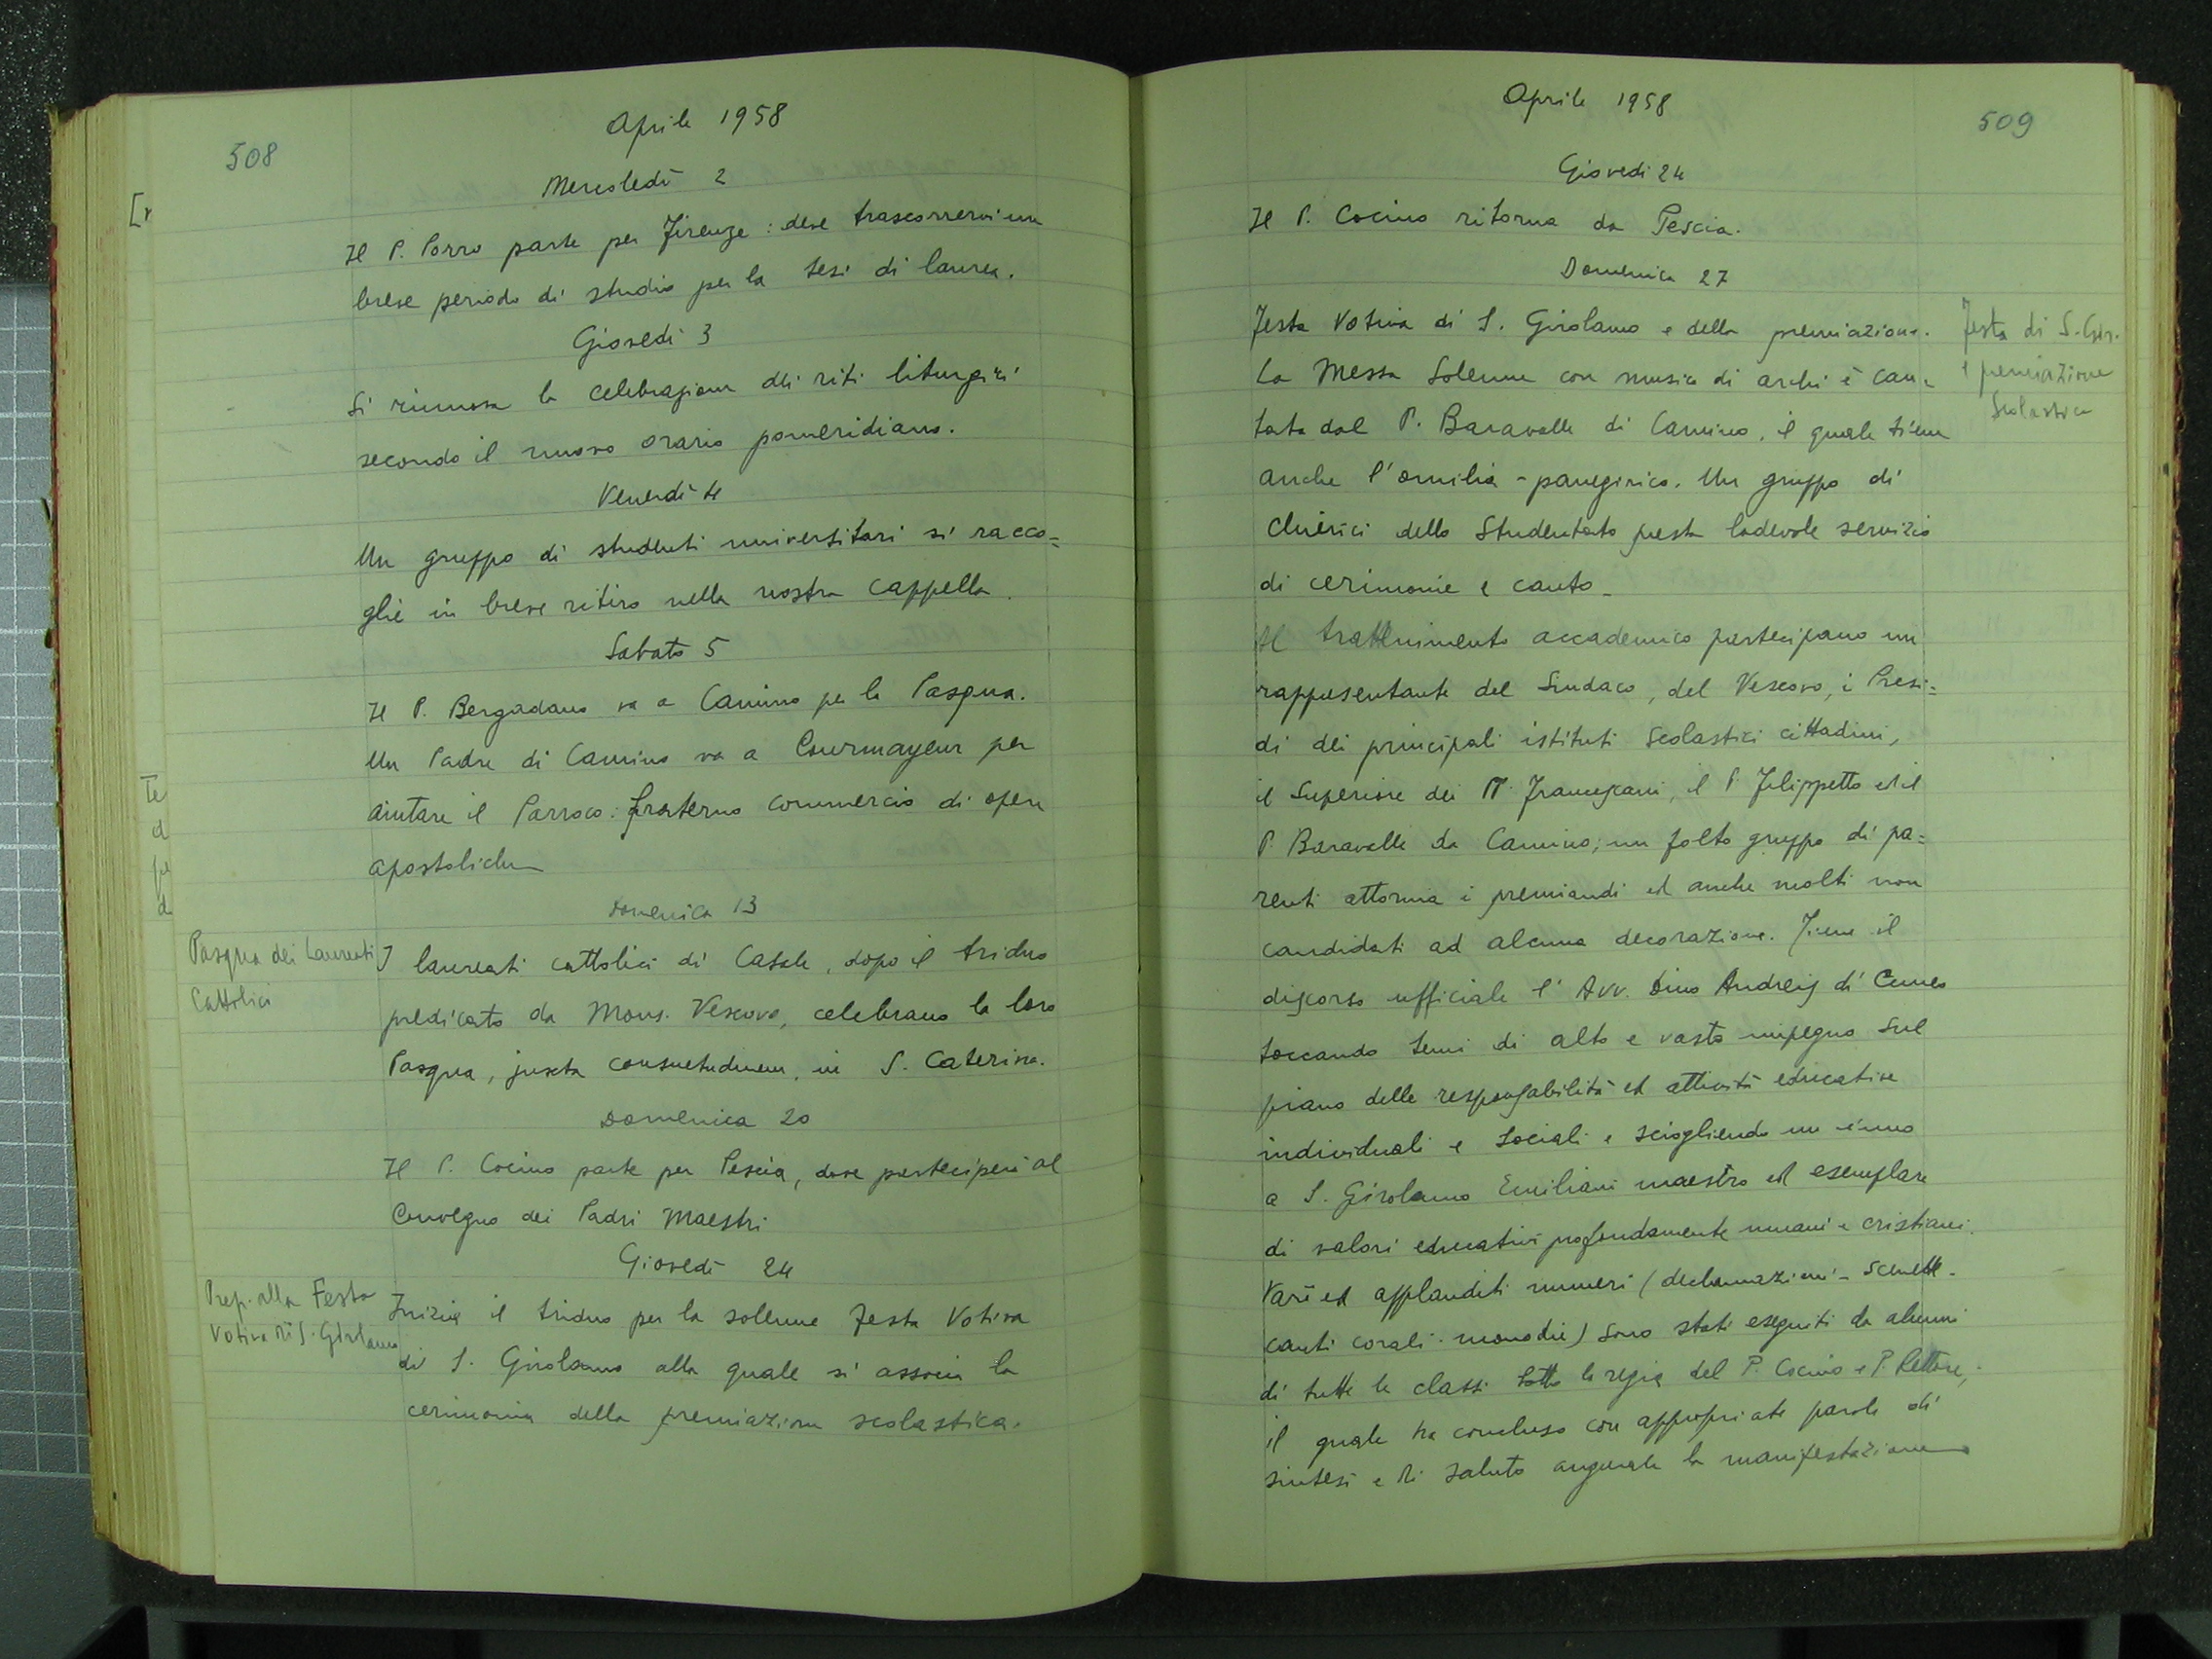 508
Aprile 1958
Mercoledì 2
Il P. Porro parte per Firenze: deve trascorrervi un
breve periodo di studio per la tesi di laurea.
Giovedì 3
Si rinnova la celebrazione dei riti liturgici
secondo il nuovo orario pomeridiano.
Venerdì 4
Un gruppo di studenti universitari si racco=
glie in breve ritiro nella nostra cappella.
Sabato 5
Il P. Bergadano va a Camino per la Pasqua.
Un Padre di Camino va a Courmayeur per
aiutare il Parroco: fraterno commercio di opere
apostoliche
Domenica 13
Pasqua dei Laureati
Cattolici
I laureati cattolici di Casale, dopo il triduo
predicato da Mons. Vescovo, celebrano la loro
Pasqua, juxta consuetudinem, in S. Caterina.
Domenica 20
Il P. Cocino parte per Pescia, dove parteciperà al
Convegno dei Padri Maestri
Giovedì 24
Prep. alla Festa
Votiva di S. Girolamo
Inizia il triduo per la solenne Festa Votiva
di S. Girolamo alla quale si associa la
cerimonia della premiazione scolastica.
Aprile 1958
509
Giovedì 24
Il P. Cocino ritorna da Pescia.
Domenica 27
Festa di S. Gir.
e premiazione
Scolastica
Festa Votiva di S. Girolamo e della premiazione.
La Messa Solenne con musica di archi è can=
tata dal P. Baravalle di Camino, il quale tiene
anche l'omilia-panegirico. Un gruppo di
Chierici dello Studentato presta lodevole servizio
di cerimonie e canto.
Al trattenimento accademico partecipano un
rappresentante del Sindaco, del Vescovo, i Presi=
di dei principali istituti scolastici cittadini,
il Superiore dei PP. Francescani, il P. Filippetto ed il
P. Baravalle da Camino; un folto gruppo di pa=
renti attornia i premiandi ed anche molti non
candidati ad alcuna decorazione. Tiene il
discorso ufficiale l'Avv. Dino Andreis di Cuneo
toccando temi di alto e vasto impegno sul
piano delle responsabilità ed attività educative
individuali e sociali e sciogliendo un inno
a S. Girolamo Emiliani maestro ed esemplare
di valori educativi profondamente umani e cristiani.
Vari ed applauditi numeri (declamazioni - scenette -
canti corali - monodie) sono stati eseguiti da alunni
di tutte le classi sotto la regia del P. Cocino e P. Rettore,
il quale ha concluso con appropriate parole di
sintesi e di saluto augurale la manifestazione